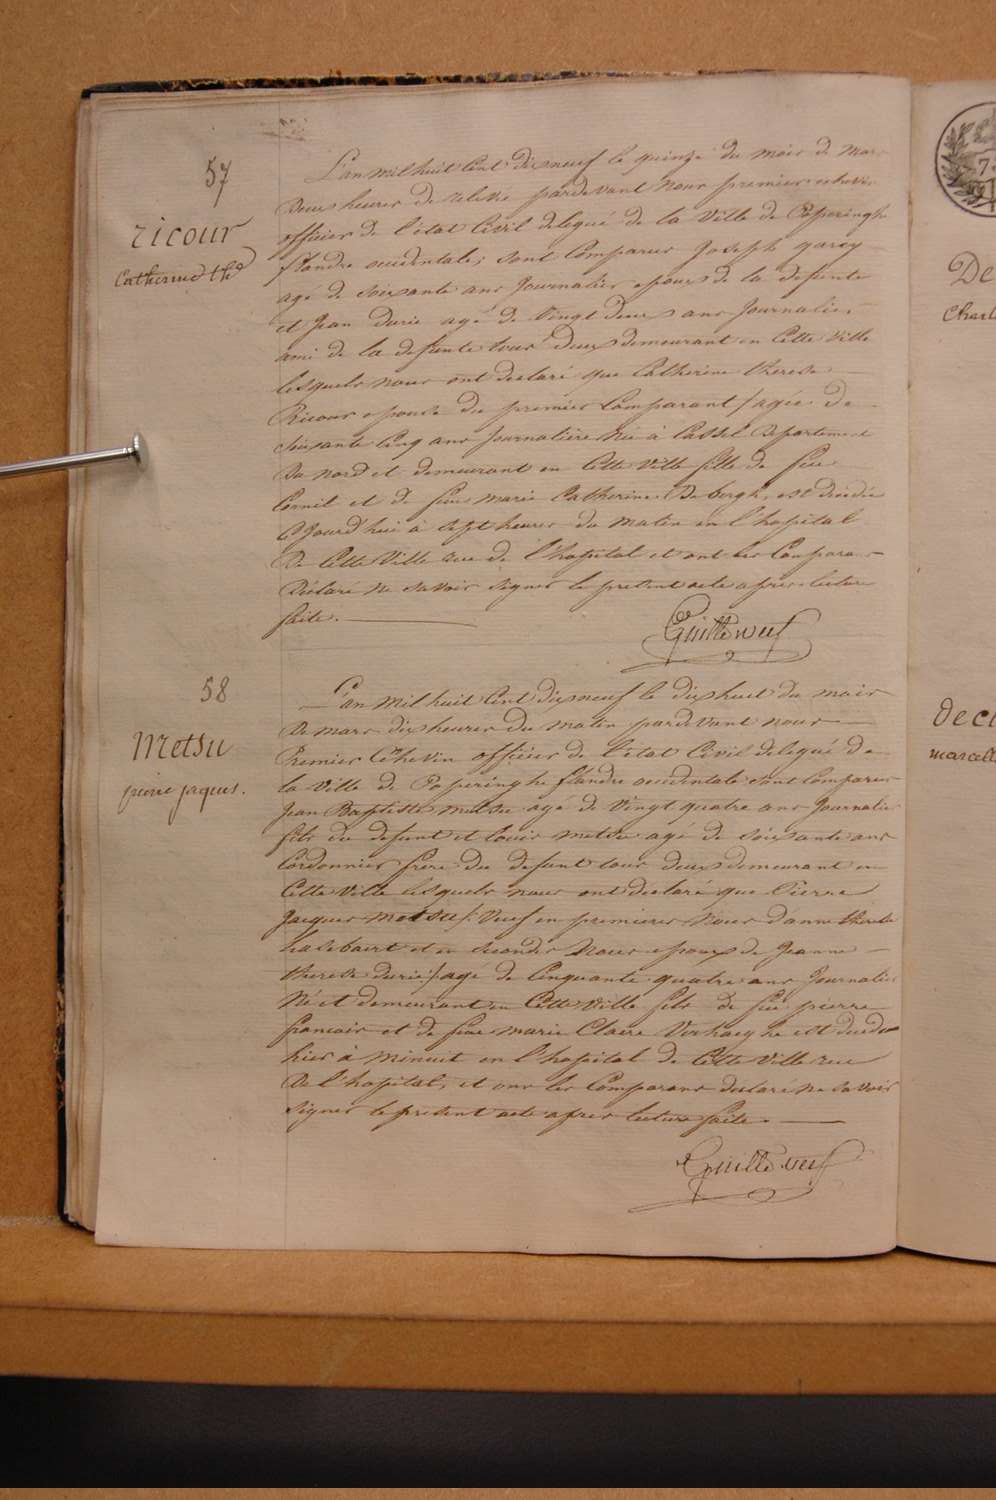 57
ricour
Catherine thé
L'an mil huit Cent dixneuf le quinze du mois de mars
deux heures de relevée pardevant nous premier echevin
officier de l'etat Civil delegué de la Ville de Poperinghe
flandre occidentale; sont Comparus Joseph garey
agé de soixante ans Journalier epoux de la defunte
et Jean durie agé de Vingt Deux ans Journalier
ami de la defunte tous deux demeurant en Cette Ville
lesquels nous ont declaré que Catherine therese
Ricour epouse du premier Comparant / agée de
soixante Cinq ans Journalière née à Cassel Departement
du nord et demeurant en Cette Ville fille de feu
Cornil et de feue marie Catherine De bergh, est décédée
Cejourd'hui à sept heures du matin en l'hopital
de Cette Ville rue de l'hopital et ont les Comparans
Déclaré ne savoir signer le present acte apres lecture
faite.
Guilleweef
58
Metsu
pierre jaques.
L'an mil huit Cent dixneuf le dix huit du mois
de mars dix heures du matin pardevant nous
Premier Echevin officier de l'etat Civil delegué de
la Ville de Poperinghe flandre occidentale sont Comparus
Jean Baptiste metsu agé de Vingt quatre ans Journalier
fils du defunt et Louis metsu agé de soixante ans
Cordonnier frere du defunt tous deux demeurant en
Cette Ville lesquels nous ont declaré que Pierre
Jacques metsu /: Veuf en premieres Noces d'anne therese
et en secondes Noces epoux de Jeanne
therese durie :/ agé de Cinquante quatre ans Journalier
Né et demeurant en Cette Ville fils de feu pierre
francois et de feue marie Claire Verhaeghe est decedé
hier à minuit en l'hopital de Cette Ville rue
de l'hopital, et ont les Comparans declaré ne savoir
signer le present acte apres lecture faite.
Guilleweef
7
De
Charl
deci
marcell